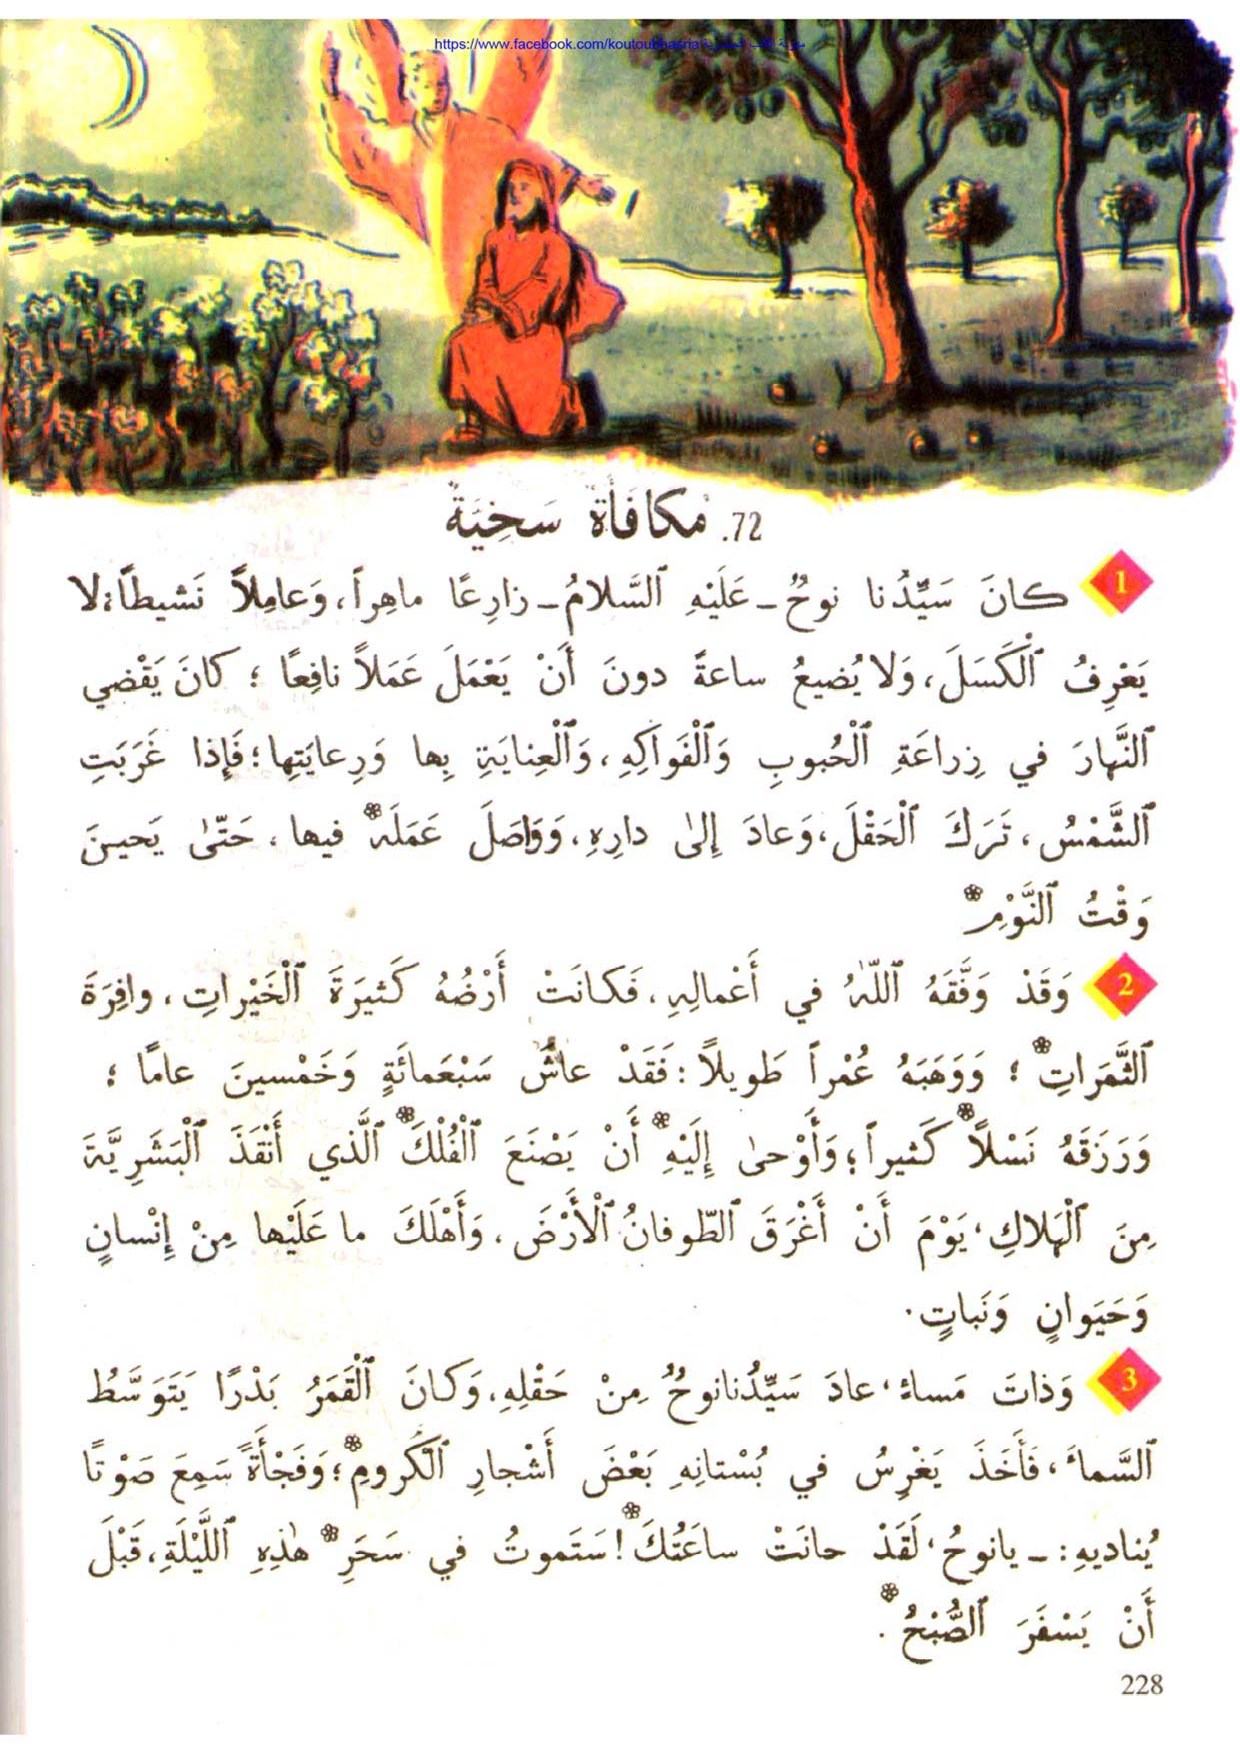 https://www.facebook.com/koutoubhasria
72. مُكافَأَةٌ سَخِيَّةٌ
1 كانَ سَيِّدُنا نوحٌ – عَلَيْهِ ٱلسَّلامُ – زارِعًا ماهِراً، وَعامِلاً نَشيطاً، لا
يَعْرِفُ ٱلْكَسَلَ، وَلا يُضيعُ ساعةً دونَ أَنْ يَعْمَلَ عَمَلاً نافِعًا ؛ كانَ يَقْضي
ٱلنَّهارَ في زِراعَةِ ٱلْحُبوبِ وَٱلْفَواكِهِ، وَٱلْعِنايَةِ بِها وَرِعايَتِها؛ فَإِذا غَرَبَتِ
ٱلشَّمْسُ، تَرَكَ ٱلْحَقْلَ، وَعادَ إِلىٰ دارِهِ، وَوَاصَلَ عَمَلَهُ* فيها، حَتّىٰ يَحينَ
وَقْتُ ٱلنَّوْمِ*
2 وَقَدْ وَفَّقَهُ ٱللّٰهُ في أَعْمالِهِ، فَكانَتْ أَرْضُهُ كَثيرَةَ ٱلْخَيْراتِ، وافِرَةَ
ٱلثَّمَراتِ* ؛ وَوَهَبَهُ عُمْراً طَويلاً : فَقَدْ عاشَ سَبْعَمائَةٍ وَخَمْسينَ عامًا ؛
وَرَزَقَهُ نَسْلاً* كَثيراً؛ وَأَوْحىٰ إِلَيْهِ* أَنْ يَصْنَعَ ٱلْفُلْكَ* ٱلَّذي أَنْقَذَ ٱلْبَشَرِيَّةَ
مِنَ ٱلْهَلاكِ، يَوْمَ أَنْ أَغْرَقَ ٱلطّوفانُ ٱلْأَرْضَ، وَأَهْلَكَ ما عَلَيْها مِنْ إِنْسانٍ
وَحَيَوانٍ وَنَباتٍ.
3 وَذاتَ مَساءٍ، عادَ سَيِّدُنا نوحٌ مِنْ حَقْلِهِ، وَكانَ ٱلْقَمَرُ بَدْرًا يَتَوَسَّطُ
ٱلسَّماءَ، فَأَخَذَ يَغْرِسُ في بُسْتانِهِ بَعْضَ أَشْجارِ ٱلْكُرومِ*؛ وَفَجْأَةً سَمِعَ صَوْتًا
يُناديهِ : – يانوحُ، لَقَدْ حانَتْ ساعَتُكَ*! سَتَموتُ في سَحَرِ* هٰذِهِ ٱللَّيْلَةِ، قَبْلَ
أَنْ يَسْفَرَ ٱلصُّبْحُ*.
228